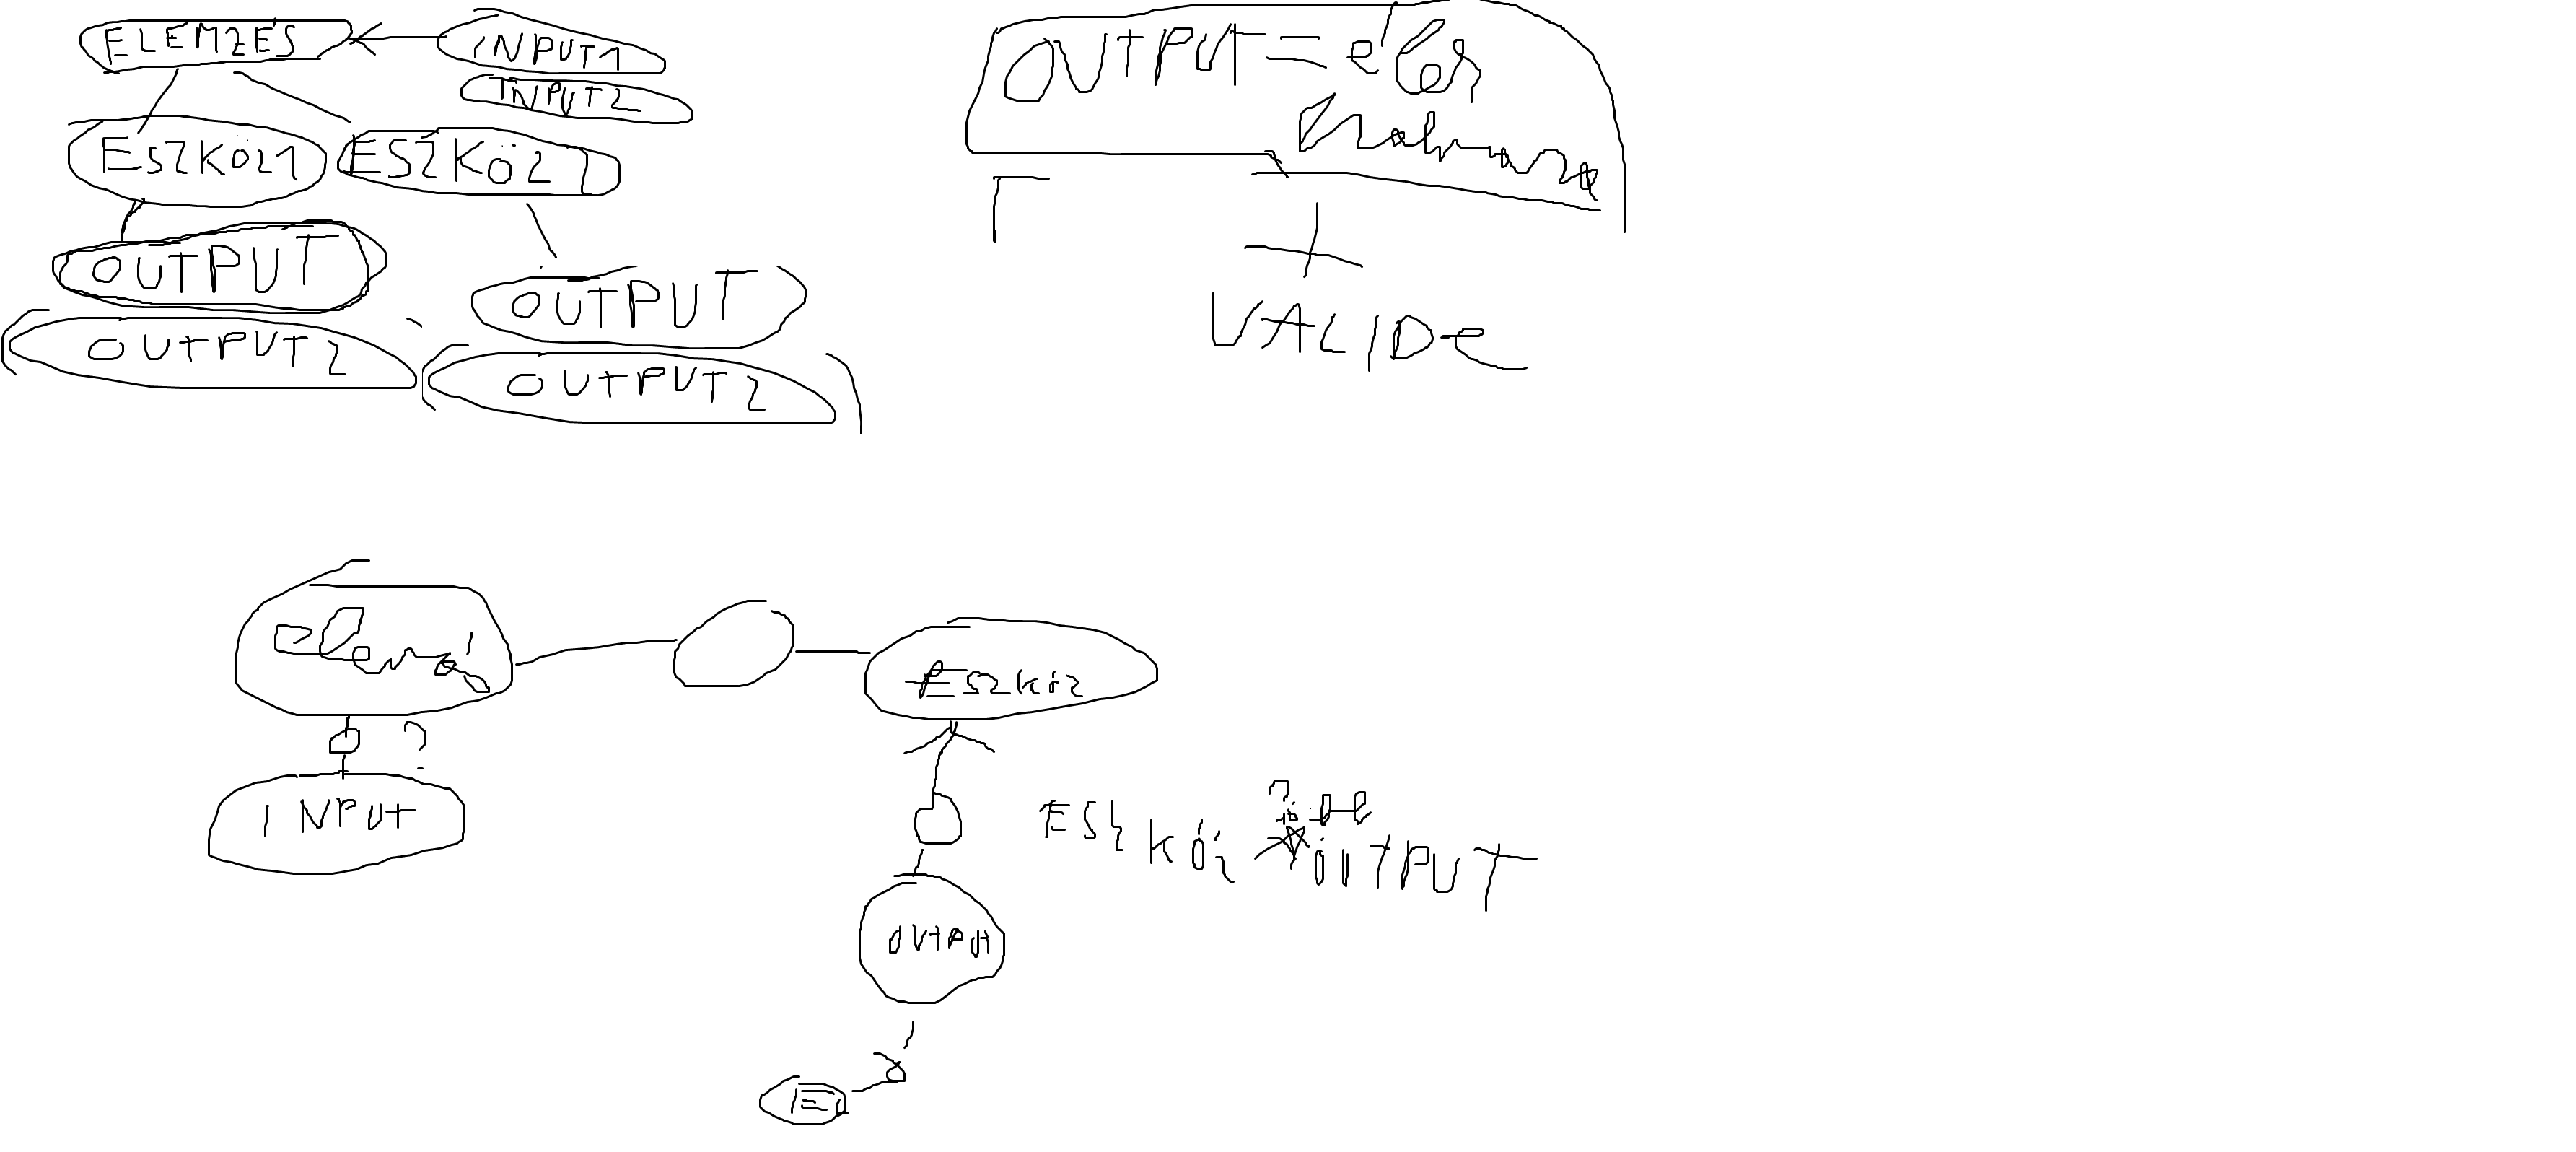 ELEMZÉS
INPUT1
INPUT2
ESZKÖZ1
ESZKÖZ2
OUTPUT
OUTPUT2
OUTPUT
OUTPUT2
OUTPUT =
+
VALIDE
elemzés
?
INPUT
ESZKÖZ
OUTPUT
ESZKÖZ
?
OUTPUT